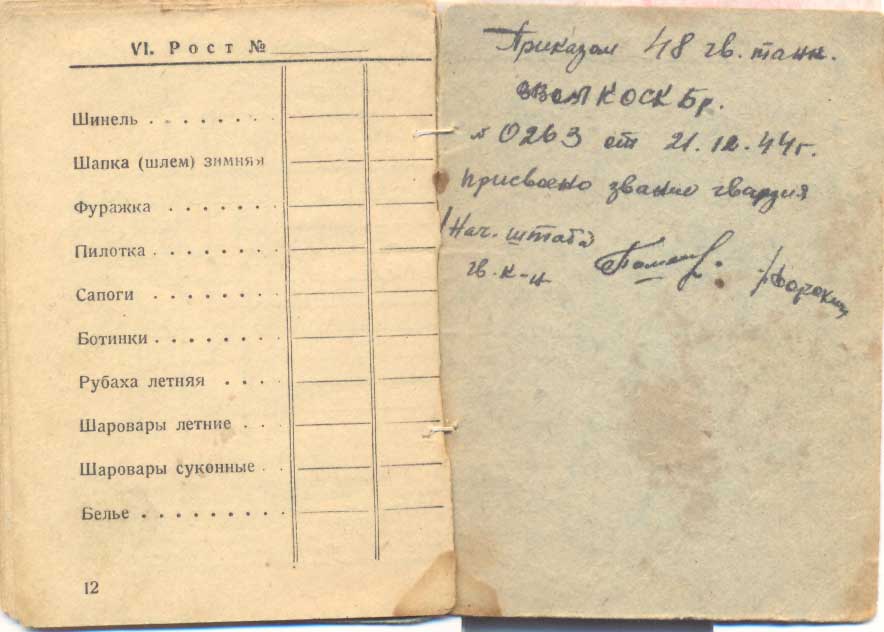 VI. Рост №
Шинель
Шапка (шлем) зимняя
Фуражка
Пилотка
Сапоги
Ботинки
Рубаха летняя
Шаровары летние
Шаровары суконные
Белье
12
Приказом 48 гв. танк.
КОСК бр.
№ 0263 от 21.12.44г.
присвоено звание гвардия
Нач. штаба
гв. к-н